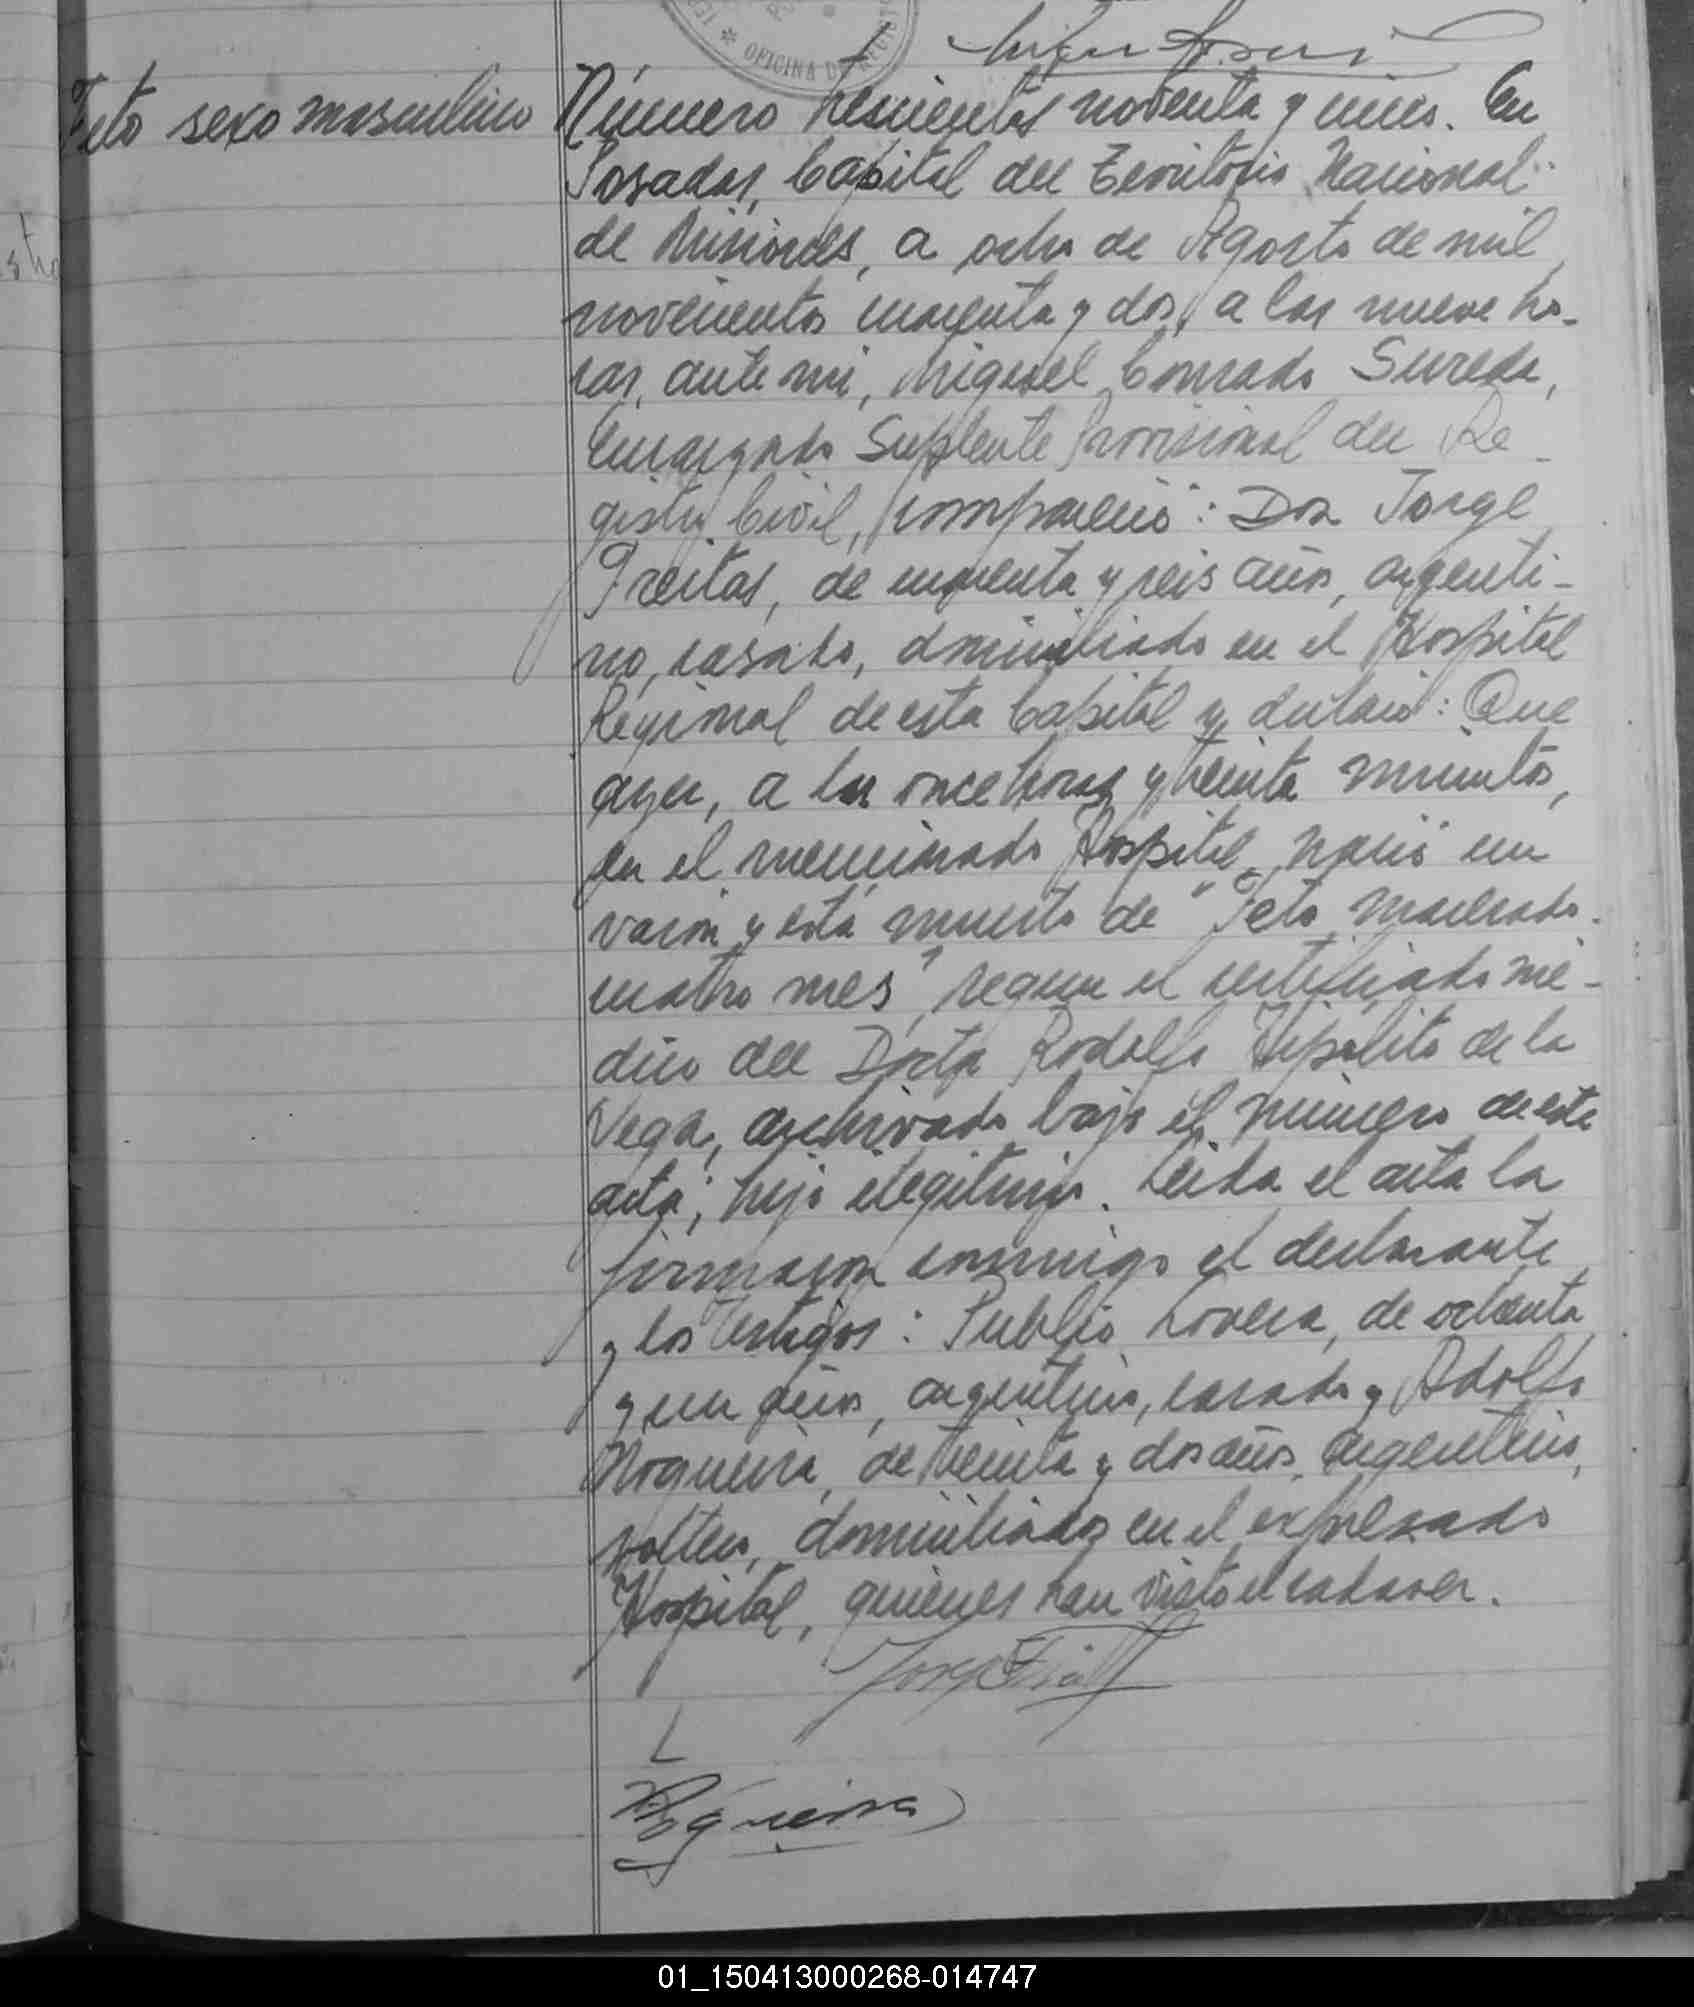 OFICINA DE
Feto sexo masculino
Número trescientos noventa y
En
Posadas, Capital del Territorio Nacional
de Misiones, a ocho de Agosto de mil
novecientos cuarenta y dos, a las nueve ho-
ras, ante mi, Miguel Conrado Sureda,
Encargado Suplente Provisional del Re-
gistro Civil, compareció: Don Jorge
Freitas, de cuarenta y seis años, argenti-
no, casado, domiciliado en el Hospital
Regional de esta Capital y declaró: Que
ayer, a las once horas y treinta minutos,
en el mencionado Hospital, nació un
varon y está muerto de "Feto macerado
cuatro mes", segun el certificado mé-
dico del Doctor Rodolfo Hipolito de la
Vega, archivado bajo el número de este
acta; hijo ilegitimo. Leida el acta la
firmaron conmigo el declarante
y los testigos: Publio Lovera, de ochenta
y un años, argentino, casado y Adolfo
Nogueira, de treinta y dos años, argentino,
soltero, domiciliados en el expresado
Hospital, quienes han visto el cadaver.
Nogueira
01_150413000268-014747